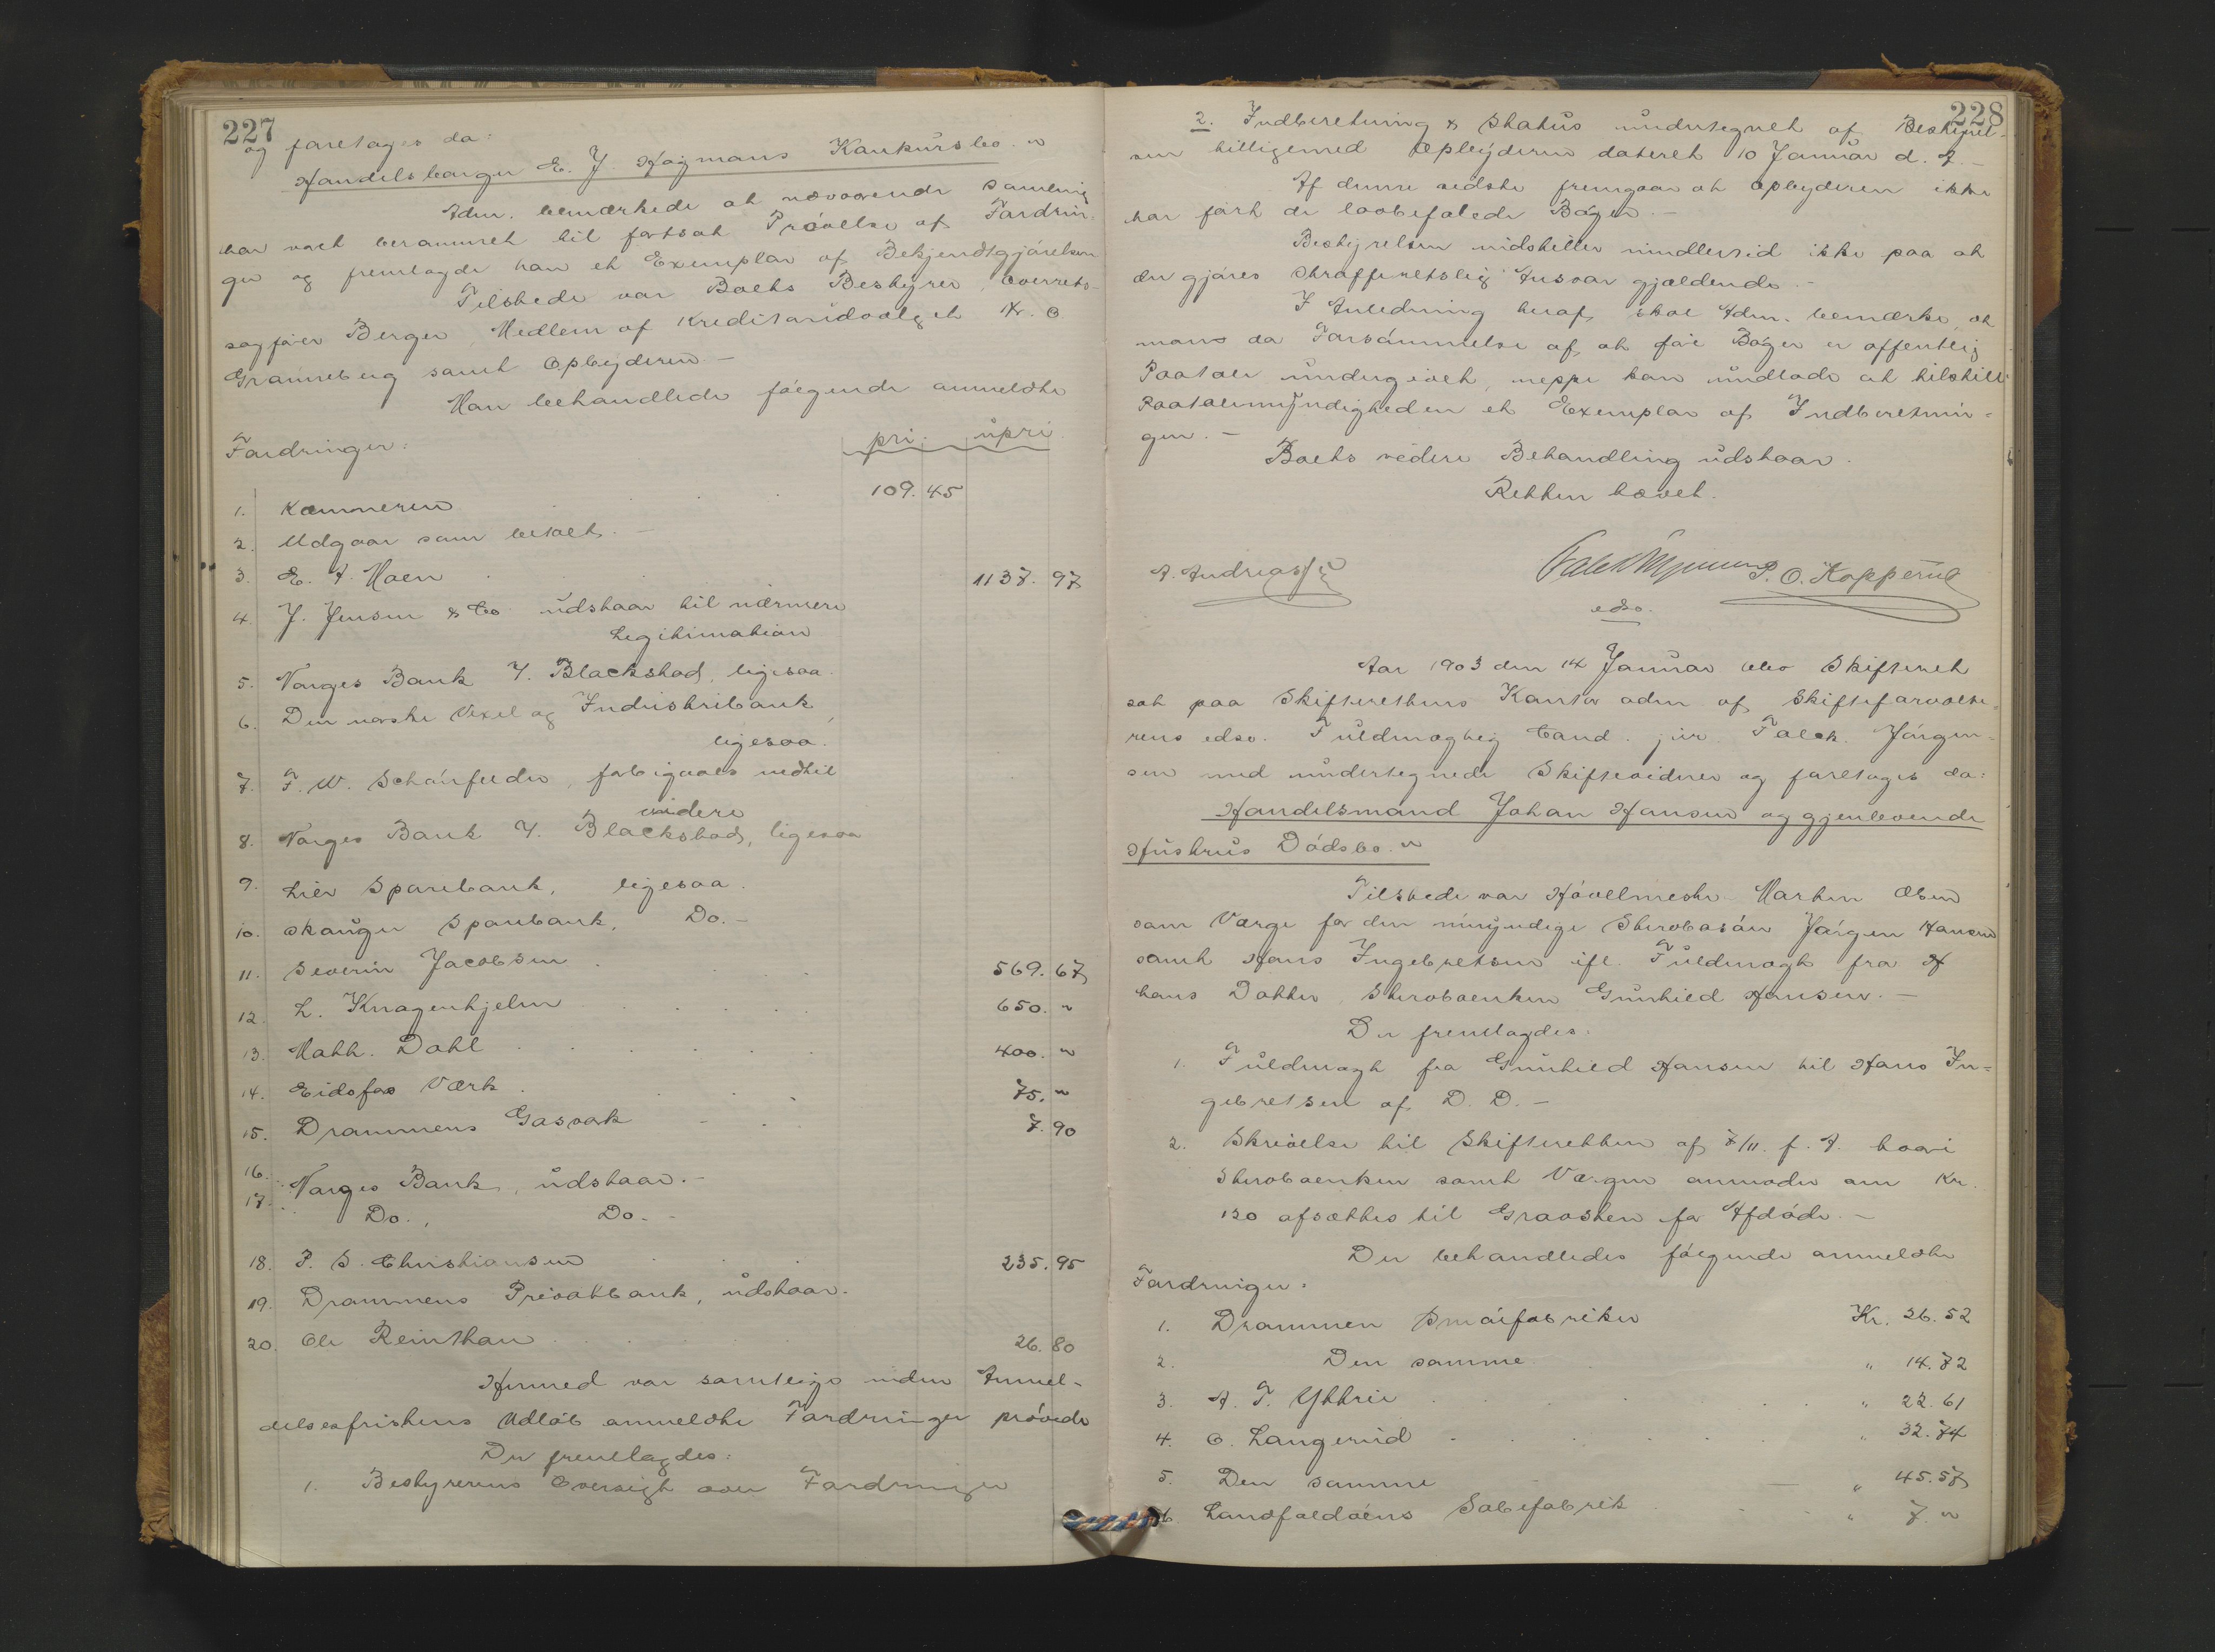 227
og foretages da:
Handelsborger E. J. Hagmans Konkursbo. "
Adm. bemærkede at nærværende Samling
har vært berammet til fortsat Prøvelse af Fordrin-
ger og fremlagde han et Exemplar af Bekjendtgjørelsen
Tilstede var Boets Bestyrer, Overrets-
sagfører Berger, Medlem af Kreditorudvalget Hr. C.
Grønneberg samt Opbyderen. —
Man behandlede følgende anmeldte
Fordringer:
pri. upri.
1. Kæmneren 109.45
2. Udgaar som betalt. —
3. E. A. Moen 1137.97
4. J. Jensen & Co udstaar til nærmere
Legitimation
5. Norges Bank f. Blackstad, ligesaa.
6. Den norske Vexel og Industribank,
ligesaa.
7. F. W. Schønfelder, forbigaaes indtil
videre
8. Norges Bank f. Blackstad, ligesaa
9. Lier Sparebank, ligesaa.
10. Skauger Sparebank, Do. —
11. Severin Jacobsen 569.67
12. L. Knagenhjelm 650. "
13. Math. Dahl 400. "
14. Eidsfos Værk 75. "
15. Drammens Gasværk 7.90
16. Norges Bank, udstaar. —
17. Do., Do. —
18. P. S. Christiansen 235.95
19. Drammens Privatbank, udstaar.
20. Ole Reinskau 26.80
Hermed var samtlige inden Anmel-
delsesfristens Udløb anmeldte Fordringer prøvede
Der fremlagdes:
1. Bestyrerens Oversigt over Fordringer
228
2. Indberetning & Status undertegnet af Bestyrel-
sen tilligemed Opbyderen dateret 10 Januar d. A. —
Af denne sidste fremgaar at Opbyderen ikke
har ført de lovbefalede Bøger. —
Bestyrelsen indstiller imidlertid ikke paa at
der gjøres strafferetslig Ansvar gjældende. —
I Anledning heraf skal Adm. bemærke, at
man da Forsømmelse af at føre Bøger er offentlig
Paatale undergivet, neppe kan undlade at tilstille
Paatalemyndigheden et Exemplar af Indberetnin-
gen. —
Boets videre Behandling udstaar.
Retten hævet.
A. Andreassen
Falck Jørgensen
P. O. Kopperud
edsv.
Aar 1903 den 14 Januar blev Skifteret
sat paa Skifterettens Kontor adm. af Skifteforvalte-
rens edsv. Fuldmægtig Cand. jur. Falck Jørgen-
sen med undertegnede Skiftevidner og foretages da:
Handelsmand Johan Hansen og gjenlevende
Hustrus Dødsbo. "
Tilstede var Høvelmester Marten Olsen
som Værge for den umyndige Stervbosøn Jørgen Hansen
samt Hans Ingebretsen ifl. Fuldmagt fra H
hans Datter, Stervboenken Gunhild Hansen. —
Der fremlagdes:
1. Fuldmagt fra Gunhild Hansen til Hans In-
gebretsen af D. D. —
2. Skrivelse til Skifteretten af 7/11. f. A. hvori
Stervboenken samt Værgen anmoder om Kr.
120 afsættes til Gravsten for Afdøde. —
Der behandledes følgende anmeldte
Fordringer:
1. Drammen Smørfabriker Kr. 26.52
2. Den samme " 14.72
3. A. T. Yttrie " 22.61
4. O. Langerud " 32.74
5. Den samme — " 45.57
6. Landfaldøens Sæbefabrik " 7. "